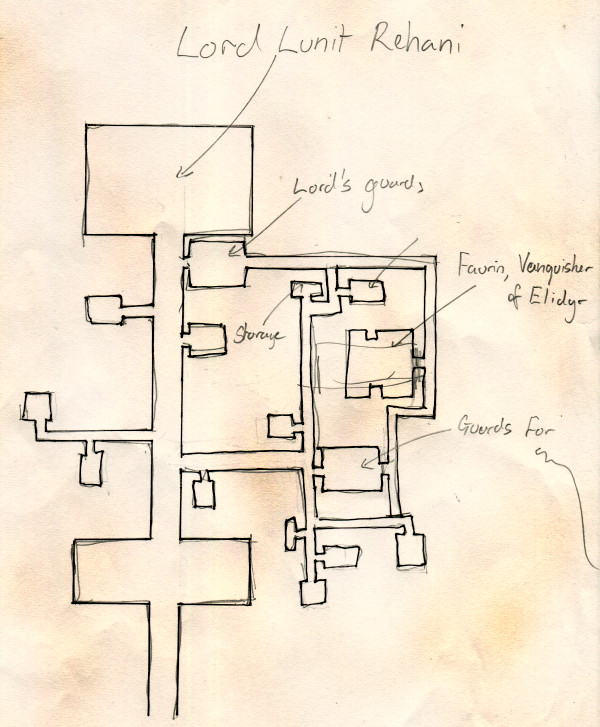 Lord Lunit Rehani
Lord's guards
Faurin, Vanquisher
of Elidyr
Storage
Guards For